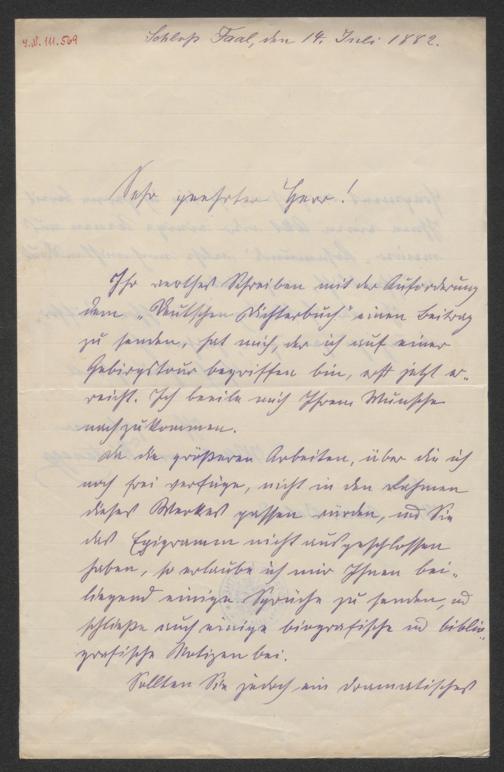 J.N. 111.569
Schloß Faal, den 14. Juli 1882.
Sehr geehrter Herr!
Ihr werthes Schreiben mit der Aufforderung
dem „Deutschen Dichterbuch" einen Beitrag
zu senden, hat mich, der ich auf einer
Gebirgstour begriffen bin, erst jetzt er-
reicht. Ich beeile mich Ihrem Wunsche
nachzukommen.
Da die größeren Arbeiten, über die ich
noch frei verfüge, nicht in den Rahmen
dieses Werkes passen würden, und Sie
das Epigramm nicht ausgeschlossen
haben, so erlaube ich mir Ihnen bei-
liegend einige Sprüche zu senden, ud
schließe auch einige biografische ud biblio-
grafische Notizen bei.
Sollten Sie jedoch ein dramatisches